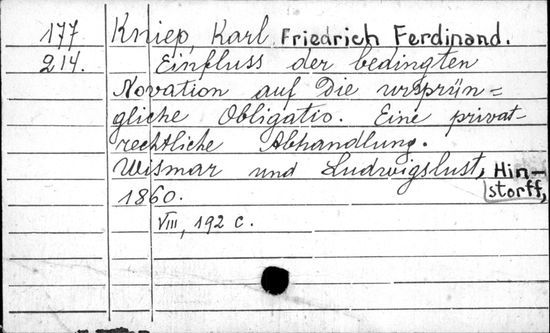 177 Kniep, Karl Friedrich Ferdinand.
214. Einfluss der bedingten
Novation auf Die ursprün=
gliche Obligatio. Eine privat-
rechtliche Abhandlung.
Wismar und Ludwigslust, Hin-
storff,
1860.
VIII, 192 c.